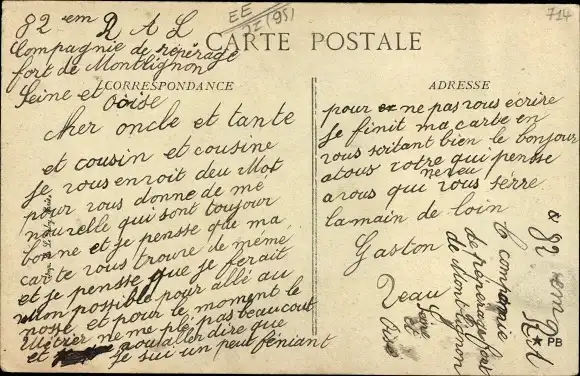 82 em R A L
Compagnie de repérage
fort de Montlignon
Seine et Oise
EE
ZZ (95)
714
CARTE POSTALE
CORRESPONDANCE
ADRESSE
cher oncle et tante
et cousin et cousine
Je vous envoit deu Mot
pour vous donne de mé
nouvelle qui sont toujour
bonne et je pensse que ma
carte vous trouve de méme
et je pensse que je ferait
mon possible pour allé au
nosse et pour le moment le
Métier ne me plé pas beaucout
et vou aller dire que
Je sui un peut féniant
pour ne pas vous écrire
Je finit ma carte en
vous soitant bien le bonjour
a tous votre neveu qui pensse
a vous qui vous sérre
la main de loin
Gaston
a 82 em
R A L
6 compagnie
de repérage fort
de Montlignon
Seine
et
Oise
PB